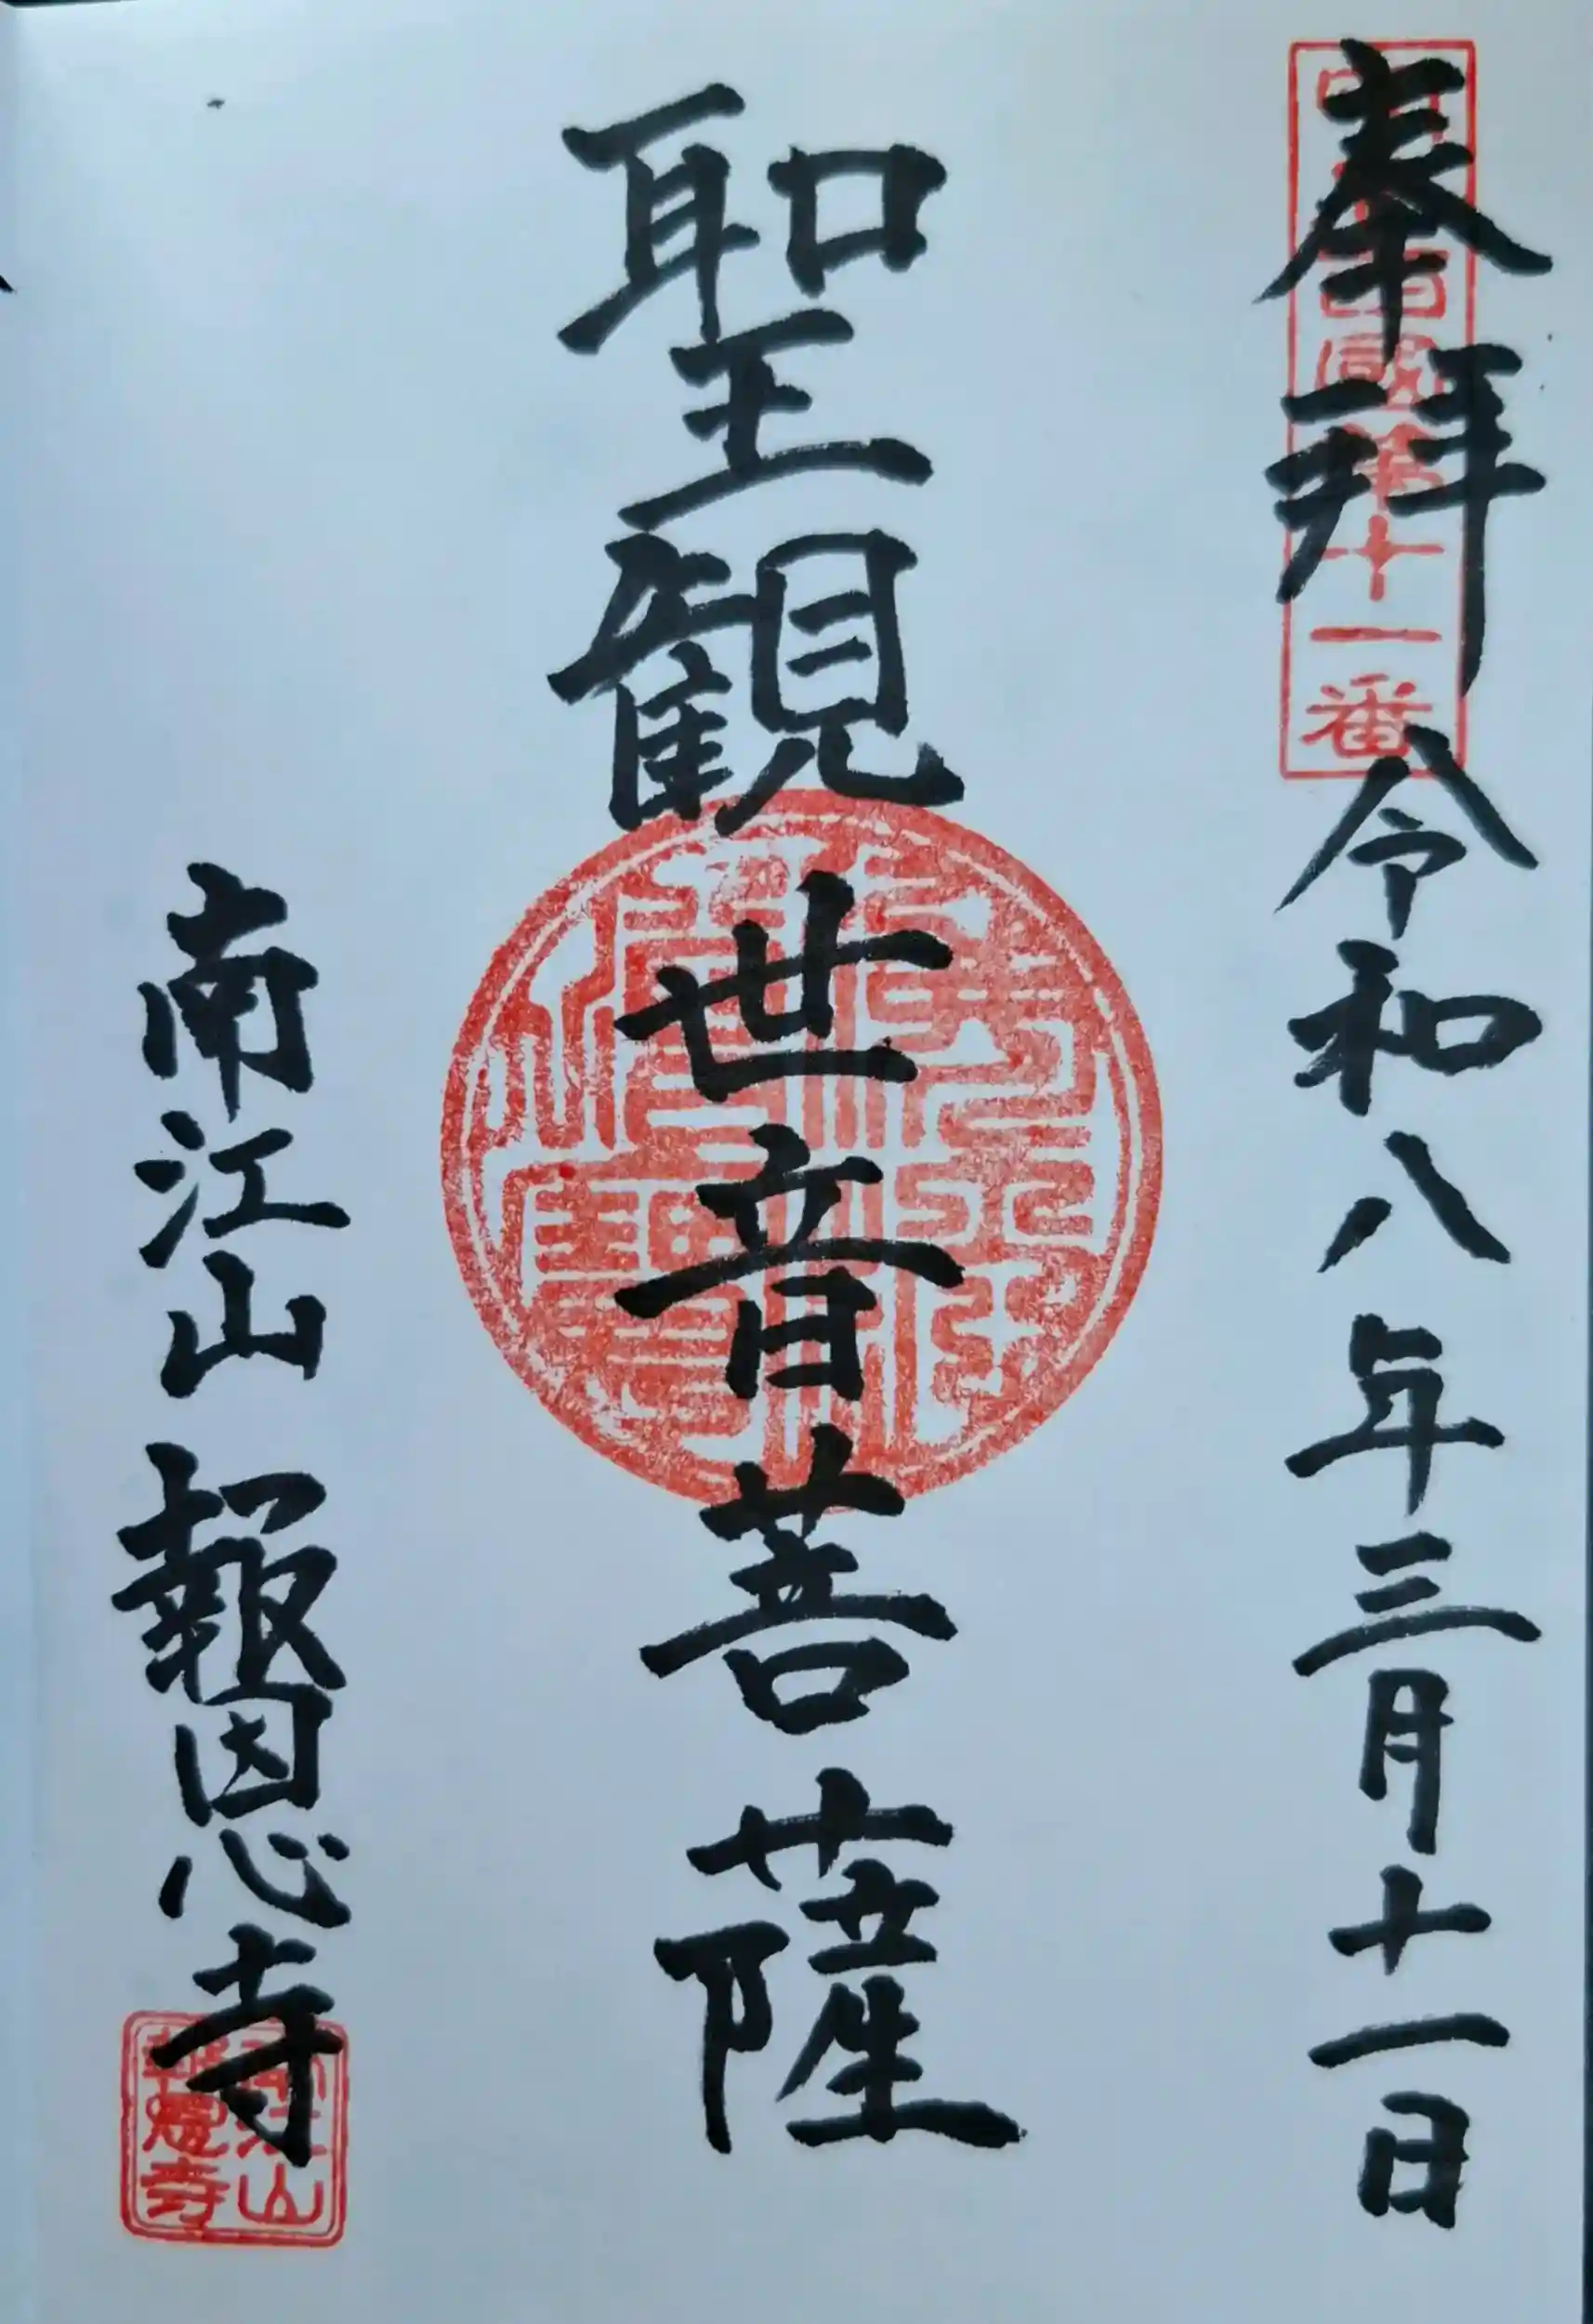 奉拝 令和八年三月十一日
聖観世音菩薩
南江山 報恩寺
十一番
南江山
報恩寺